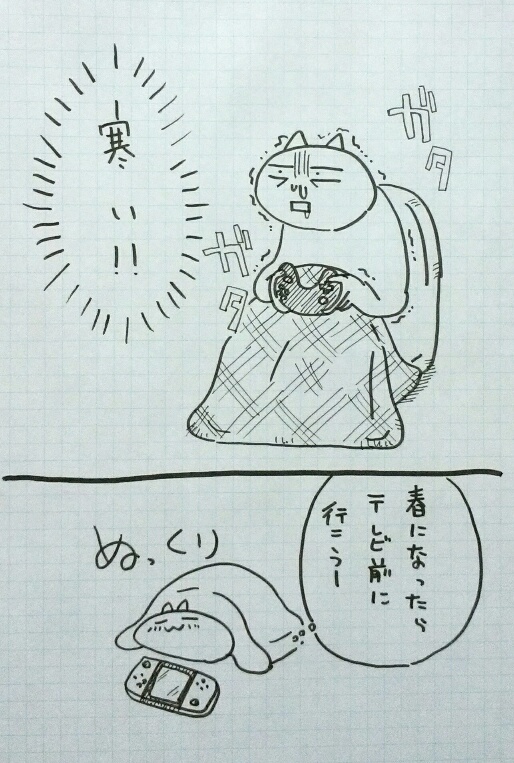 寒い!!
ガタ
ガタ
春になったら
テレビ前に
行こうー
ぬっくり